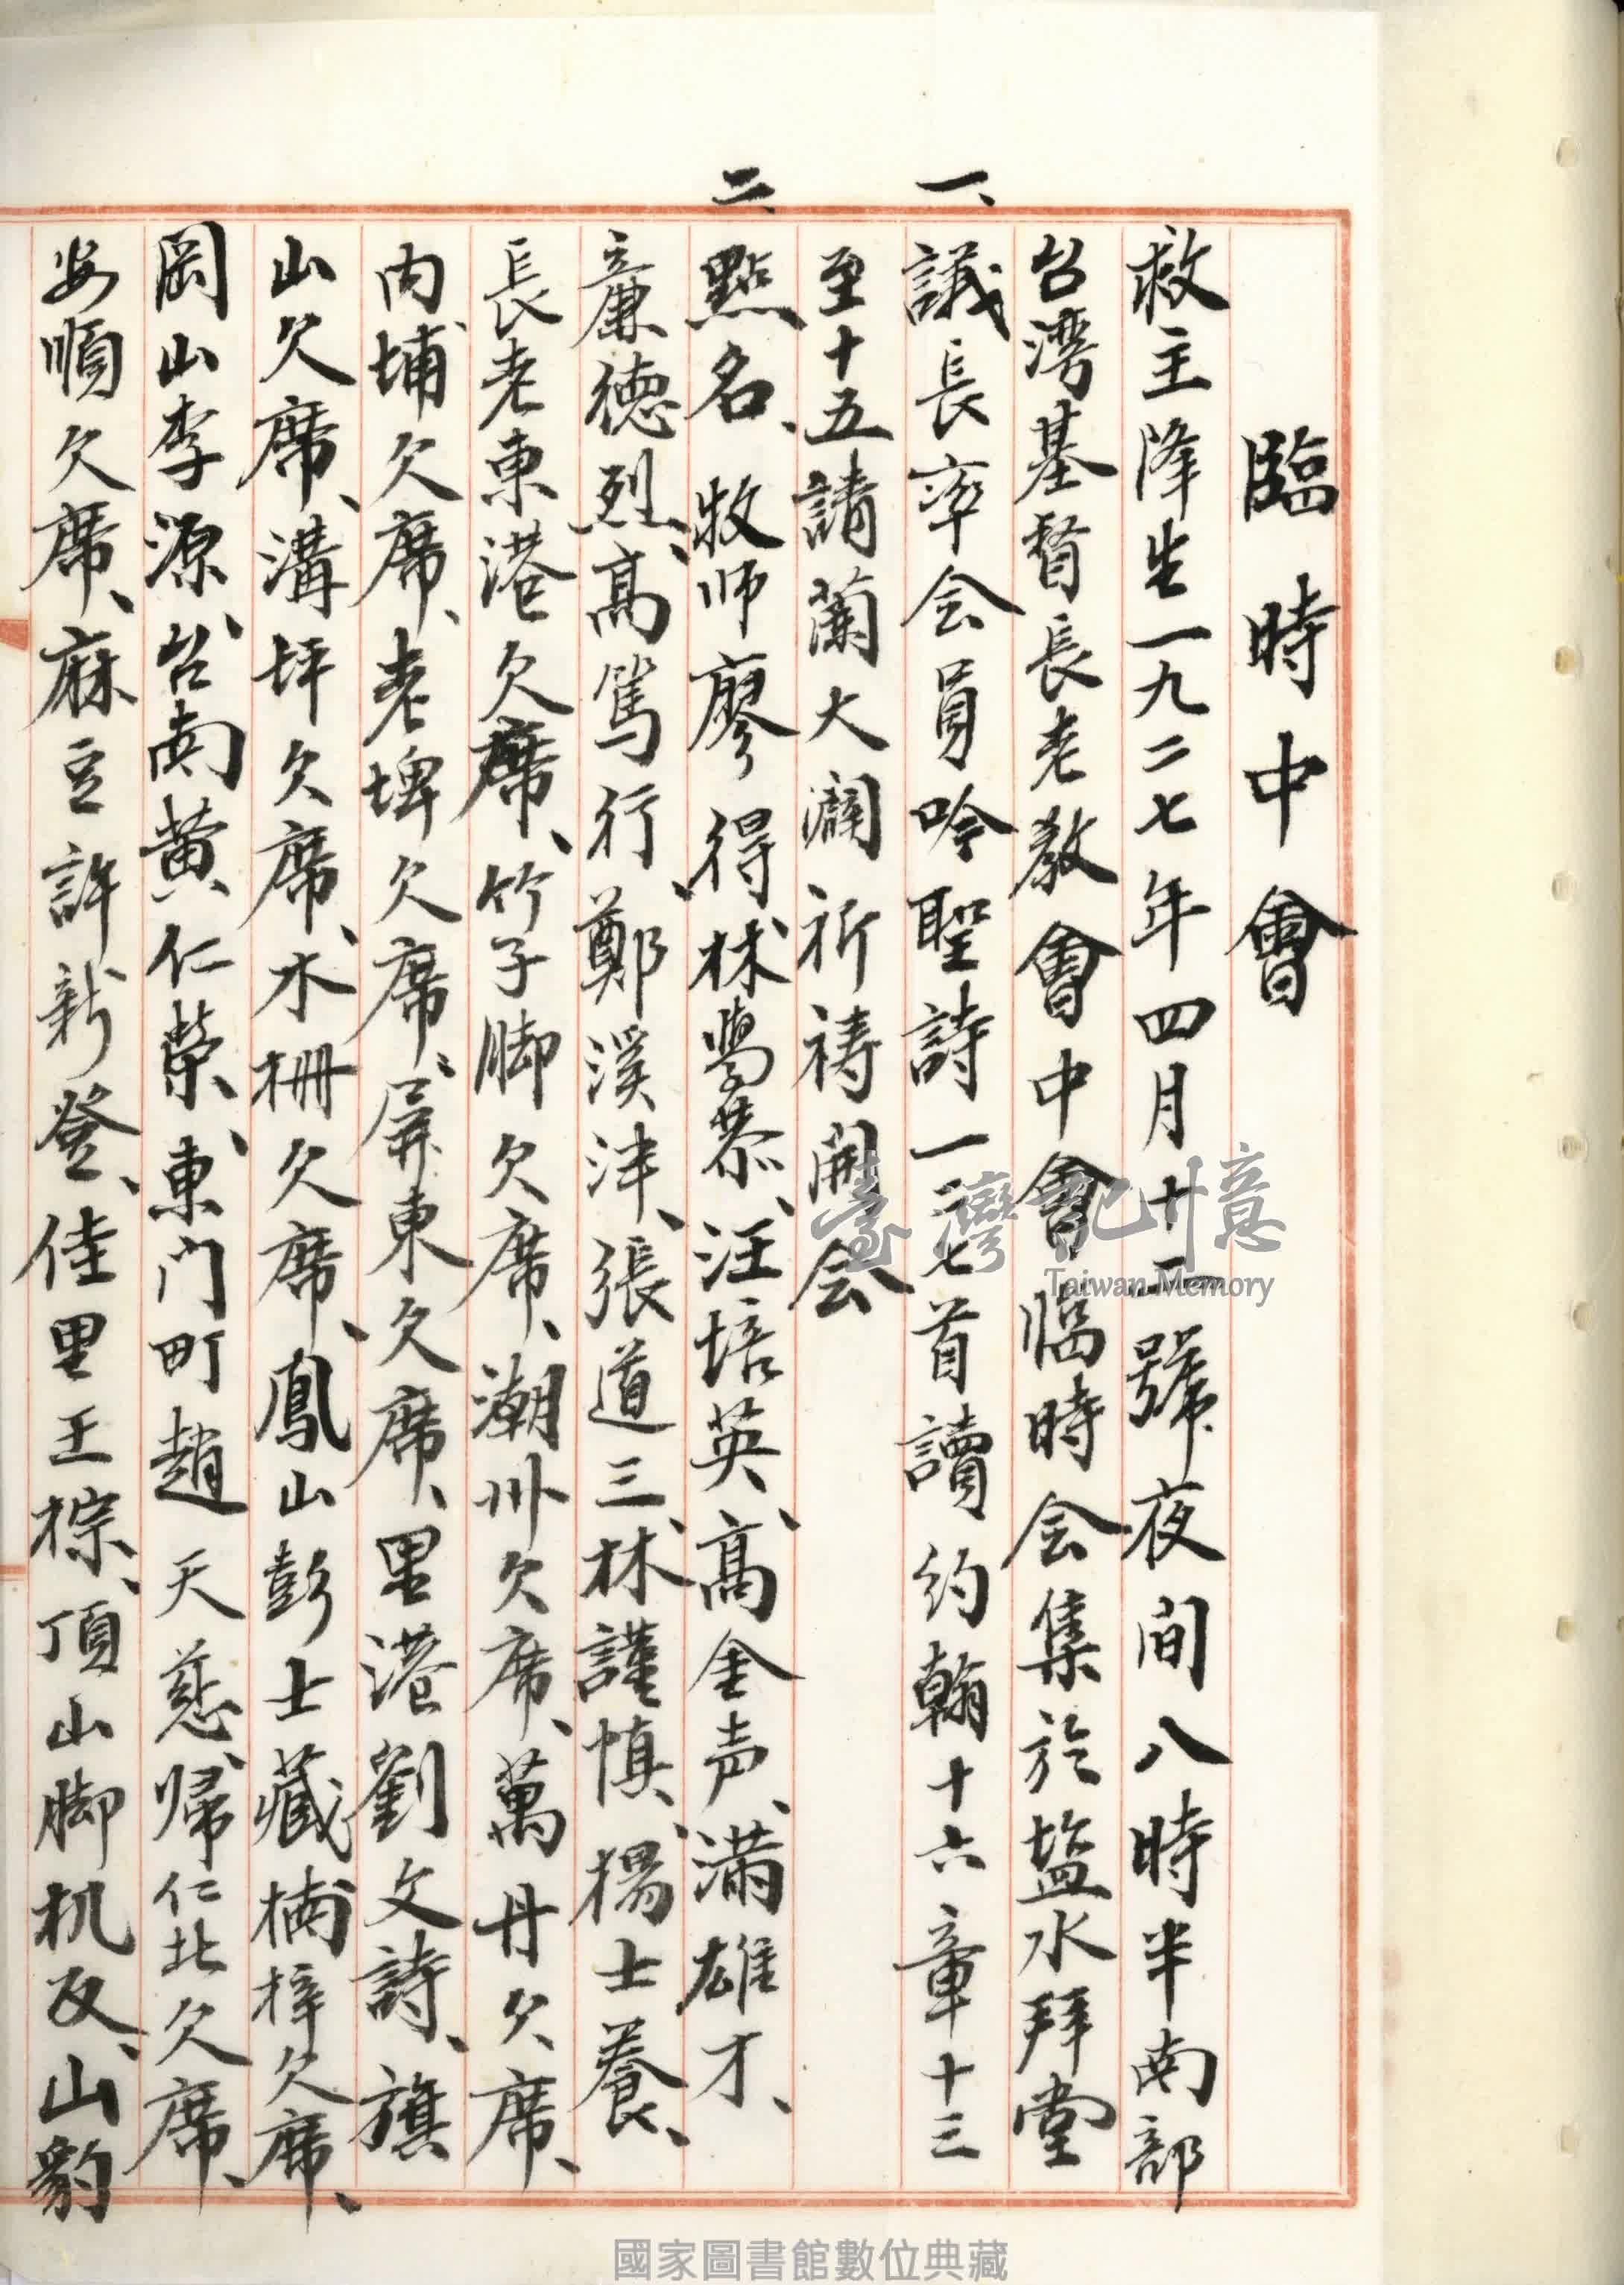 臨時中會
救主降生一九二七年四月十二號夜间八時半南部
台湾基督長老教會中會臨時会集於塩水拜堂
一、議長率会員吟聖詩一二七首讀約翰十六章十三
至十五請蘭大闢祈祷開会
二、點名、牧师廖得、林學恭、汪培英、高金声、满雄才、
廉德烈、高篤行、鄭溪泮、張道三、林謹慎、楊士養、
長老東港欠席、竹子脚欠席、潮州欠席、萬丹欠席、
内埔欠席、老埤欠席、屏東欠席、里港劉文詩、旗
山欠席、溝坪欠席、木柵欠席、鳳山彭士藏、楠梓欠席、
岡山李源、台南黄仁榮、東门町趙天慈、歸仁北欠席、
安順欠席、麻豆許新登、佳里王棕、頂山脚机反、山豹
臺灣記憶
Taiwan Memory
國家圖書館數位典藏